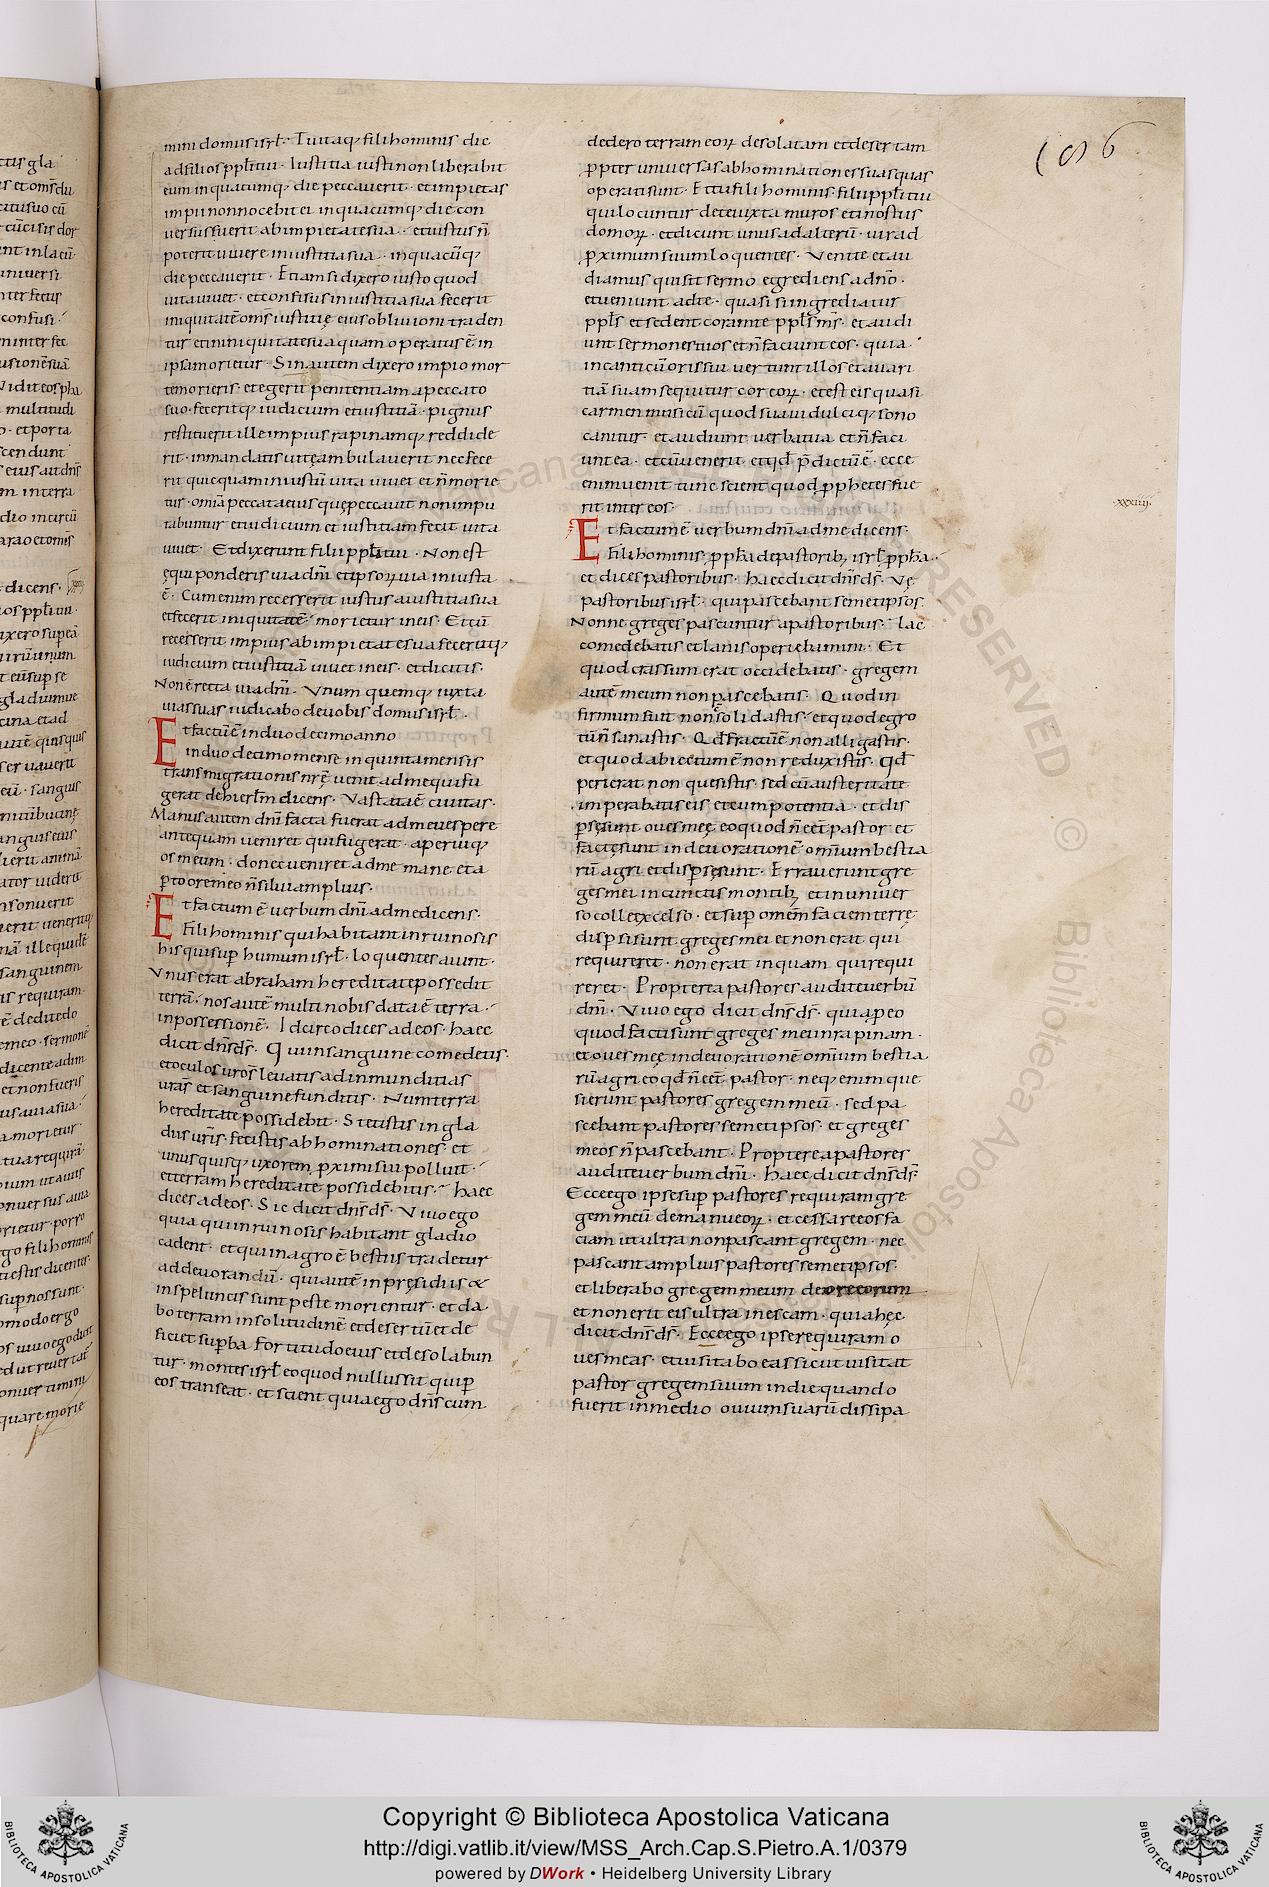 mini domus isrl̄. Tu itaq; fili hominis dic
ad filios pp̄li tui. Iustitia iusti non liberabit
eum in quacumq; die peccaverit. et impietas
impii non nocebit ei in quacumq; die con
versus fuerit ab impietate sua. et iustus n̄
poterit vivere in iustitia sua. in quacūq;
die peccaverit. Etiam si dixero iusto quod
vita vivet. et confisus in iustitia sua fecerit
iniquitatē oms̄ iustitię eius oblivioni traden
tur et in iniquitate sua quam operatus ē in
ipsa morietur. Sin autem dixero impio mor
te morieris. et egerit penitentiam a peccato
suo. feceritq; iudicium et iustitiā. pignus
restituerit ille impius rapinamq; reddide
rit. in mandatis vitę ambulaverit nec fece
rit quicquam iniustū vita vivet et n̄ morie
tur. omīa peccata eius quę peccavit non impu
tabuntur ei iudicium et iustitiam fecit vita
vivet. Et dixerunt filii pp̄li tui. Non est
ęqui ponderis via dnī et ipsoꝝ via iniusta
ē. Cum enim recesserit iustus a iustitia sua
et fecerit iniquitatē. morietur in eis. Et cū
recesserit impius ab impietate sua feceritq;
iudicium et iustitiā vivet in eis. et dicitis.
Non ē recta via dnī. Vnum quemq; iuxta
vias suas iudicabo de vobis domus isrl̄.
Et factū ē in duodecimo anno
in duodecimo mense in quinta mensis
transmigrationis nr̄ę venit ad me qui fu
gerat de hierl̄m dicens. Vastata ē civitas.
Manus autem dnī facta fuerat ad me vespere
antequam veniret qui fugerat. aperuitq;
os meum. donec veniret ad me mane et a
ꝑto ore meo n̄ silui amplius.
Et factum ē verbum dnī ad me dicens.
Fili hominis qui habitant in ruinosis
his qui suꝑ humum isrl̄. loquentes aiunt.
Vnus erat abraham hereditate possedit
terrā. nos autē multi nobis data ē terra.
in possessionē. Idcirco dices ad eos. haec
dicit dn̄s ds̄. Qui in sanguine comedetis.
et oculos vros̄ levatis ad inmunditias
vras̄ et sanguinē funditis. Num terra
hereditate possidebit. Stetistis in gla
diis vris̄. fecistis abhominationes. et
unusquisq; uxorem ꝓximi sui polluit.
et terram hereditate possidebitis. haec
dices ad eos. Sic dicit dn̄s ds̄. Vivo ego
quia qui in ruinosis habitant gladio
cadent. et qui in agro ē bestiis tradetur
ad devorandū. qui autē in pręsidiis &
in speluncis sunt peste morientur. et da
bo terram in solitudinē et desertū. et de
ficiet suꝑba fortitudo eius et desolabun
tur. montes isrl̄ eo quod nullus sit qui ꝑ
eos transeat. et scient quia ego dn̄s cum
dedero terram eoꝝ desolatam et desertam
ꝓpter universas abhominationes suas quas
operati sunt. Et tu fili hominis filii pp̄li tui
qui locuntur de te iuxta muros et in ostiis
domoꝝ. et dicunt unus ad alterū. vir ad
ꝓximum suum loquentes. Venite et au
diamus qui sit sermo egrediens a dnō.
et veniunt ad te. quasi si ingrediatur
ppl̄s et sedent coram te ppl̄s ms̄. et audi
unt sermones tuos et n̄ faciunt eos. quia.
in canticū oris sui vertunt illos et avari
tiā suam sequitur cor eoꝝ. et est eis quasi
carmen musicū quod suavi dulciq; sono
canitur. et audiunt verba tua et n̄ faci
unt ea. et cū venerit et qd̄ p̄dictū ē. ecce
enim venit tunc scient quod ꝓphetes fue
rit inter eos.
xxxiiij.
Et factum ē verbum dnī ad me dicens.
Fili hominis ꝓpha de pastorib; isrl̄ ꝓpha.
et dices pastoribus. haec dicit dn̄s ds̄. Vę
pastoribus isrl̄. qui pascebant semetipsos.
Nonne greges pascuntur a pastoribus. lac
comedebatis et lanis operiebamini. Et
quod crassum erat occidebatis. gregem
autē meum non pascebatis. Quod in
firmum fuit non solidastis. et quod egro
tūm̄ sanastis. Qd̄ fractū ē non alligastis.
et quod abiectum ē non reduxistis. Qd̄
perierat non quesistis. sed cū austeritate
imperabatis eis et cum potentia. et dis
ꝑsę sunt oves męę eo quod n̄ eet̄ pastor et
factę sunt in devorationē omīum bestia
rū agri et disꝑsę sunt. Erraverunt gre
ges mei in cunctis montib; et in univer
so colle excelso. et suꝑ omēm faciem terrę.
disꝑsi sunt greges mei et non erat qui
requireret. non erat inquam qui requi
reret. Propterea pastores audite verbū
dnī. Vivo ego dicit dn̄s ds̄. quia ꝓ eo
quod facti sunt greges mei in rapinam.
et oves męę in devorationē omīum bestia
rū agri eo qd̄ n̄ eet̄ pastor. neq; enim que
sierunt pastores gregem meū. sed pa
scebant pastores semetipsos. et greges
meos n̄ pascebant. Propterea pastores
audite verbum dnī. Haec dicit dn̄s ds̄.
Ecce ego ipse suꝑ pastores requiram gre
gem meū de manu eoꝝ. et cessare eos fa
ciam ut ultra non pascant gregem. nec
pascant amplius pastores semetipsos.
et liberabo gregem meum de ore eorum
et non erit eis ultra in escam. quia hęc
dicit dn̄s ds̄. Ecce ego ipse requiram o
ves meas. et visitabo eas sicut visitat
pastor gregem suum in die quando
fuerit in medio ovium suarū dissipa
Copyright © Biblioteca Apostolica Vaticana
http://digi.vatlib.it/view/MSS_Arch.Cap.S.Pietro.A.1/0379
powered by DWork • Heidelberg University Library
BIBLIOTECA APOSTOLICA VATICANA
BIBLIOTECA APOSTOLICA VATICANA